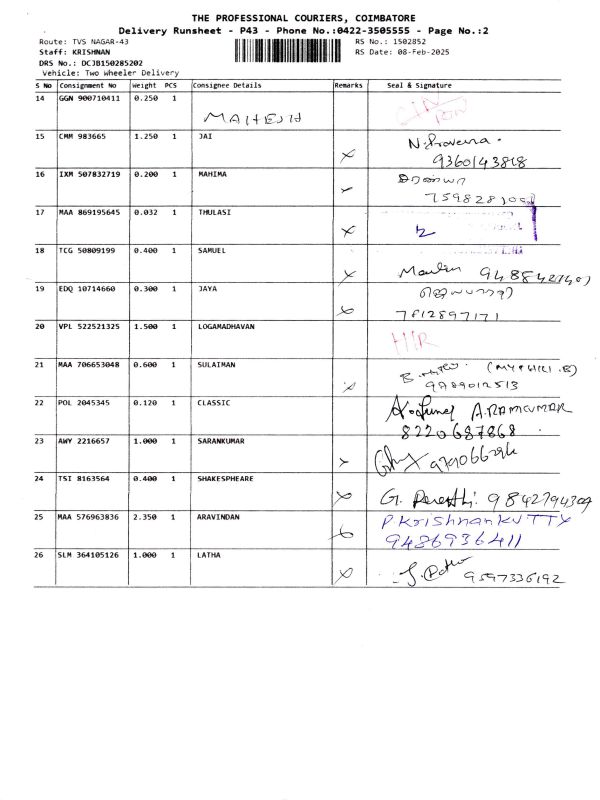 THE PROFESSIONAL COURIERS, COIMBATORE
Delivery Runsheet - P43 - Phone No.:0422-3505555 - Page No.:2
Route: TVS NAGAR-43 RS No.: 1502852
Staff: KRISHNAN RS Date: 08-Feb-2025
DRS No.: DCJB150285202
Vehicle: Two Wheeler Delivery
S No Consignment No Weight PCS Consignee Details Remarks Seal & Signature
14 GGN 900710411 0.250 1
MAHESH
15 CMM 983665 1.250 1 JAI
9360143818
16 IXM 507832719 0.200 1 MAHIMA
17 MAA 869195645 0.032 1 THULASI
18 TCG 50809199 0.400 1 SAMUEL
19 EDQ 10714660 0.300 1 JAYA
7812897171
20 VPL 522521325 1.500 1 LOGAMADHAVAN
21 MAA 706653048 0.600 1 SULAIMAN
9789012513
22 POL 2045345 0.120 1 CLASSIC A.RAMKUMAR
8220687868
23 AWY 2216657 1.000 1 SARANKUMAR
24 TSI 8163564 0.400 1 SHAKESPHEARE
G. 9842794304
25 MAA 576963836 2.350 1 ARAVINDAN P KrishnanKUTTY
9486936411
26 SLM 364105126 1.000 1 LATHA
9597336192